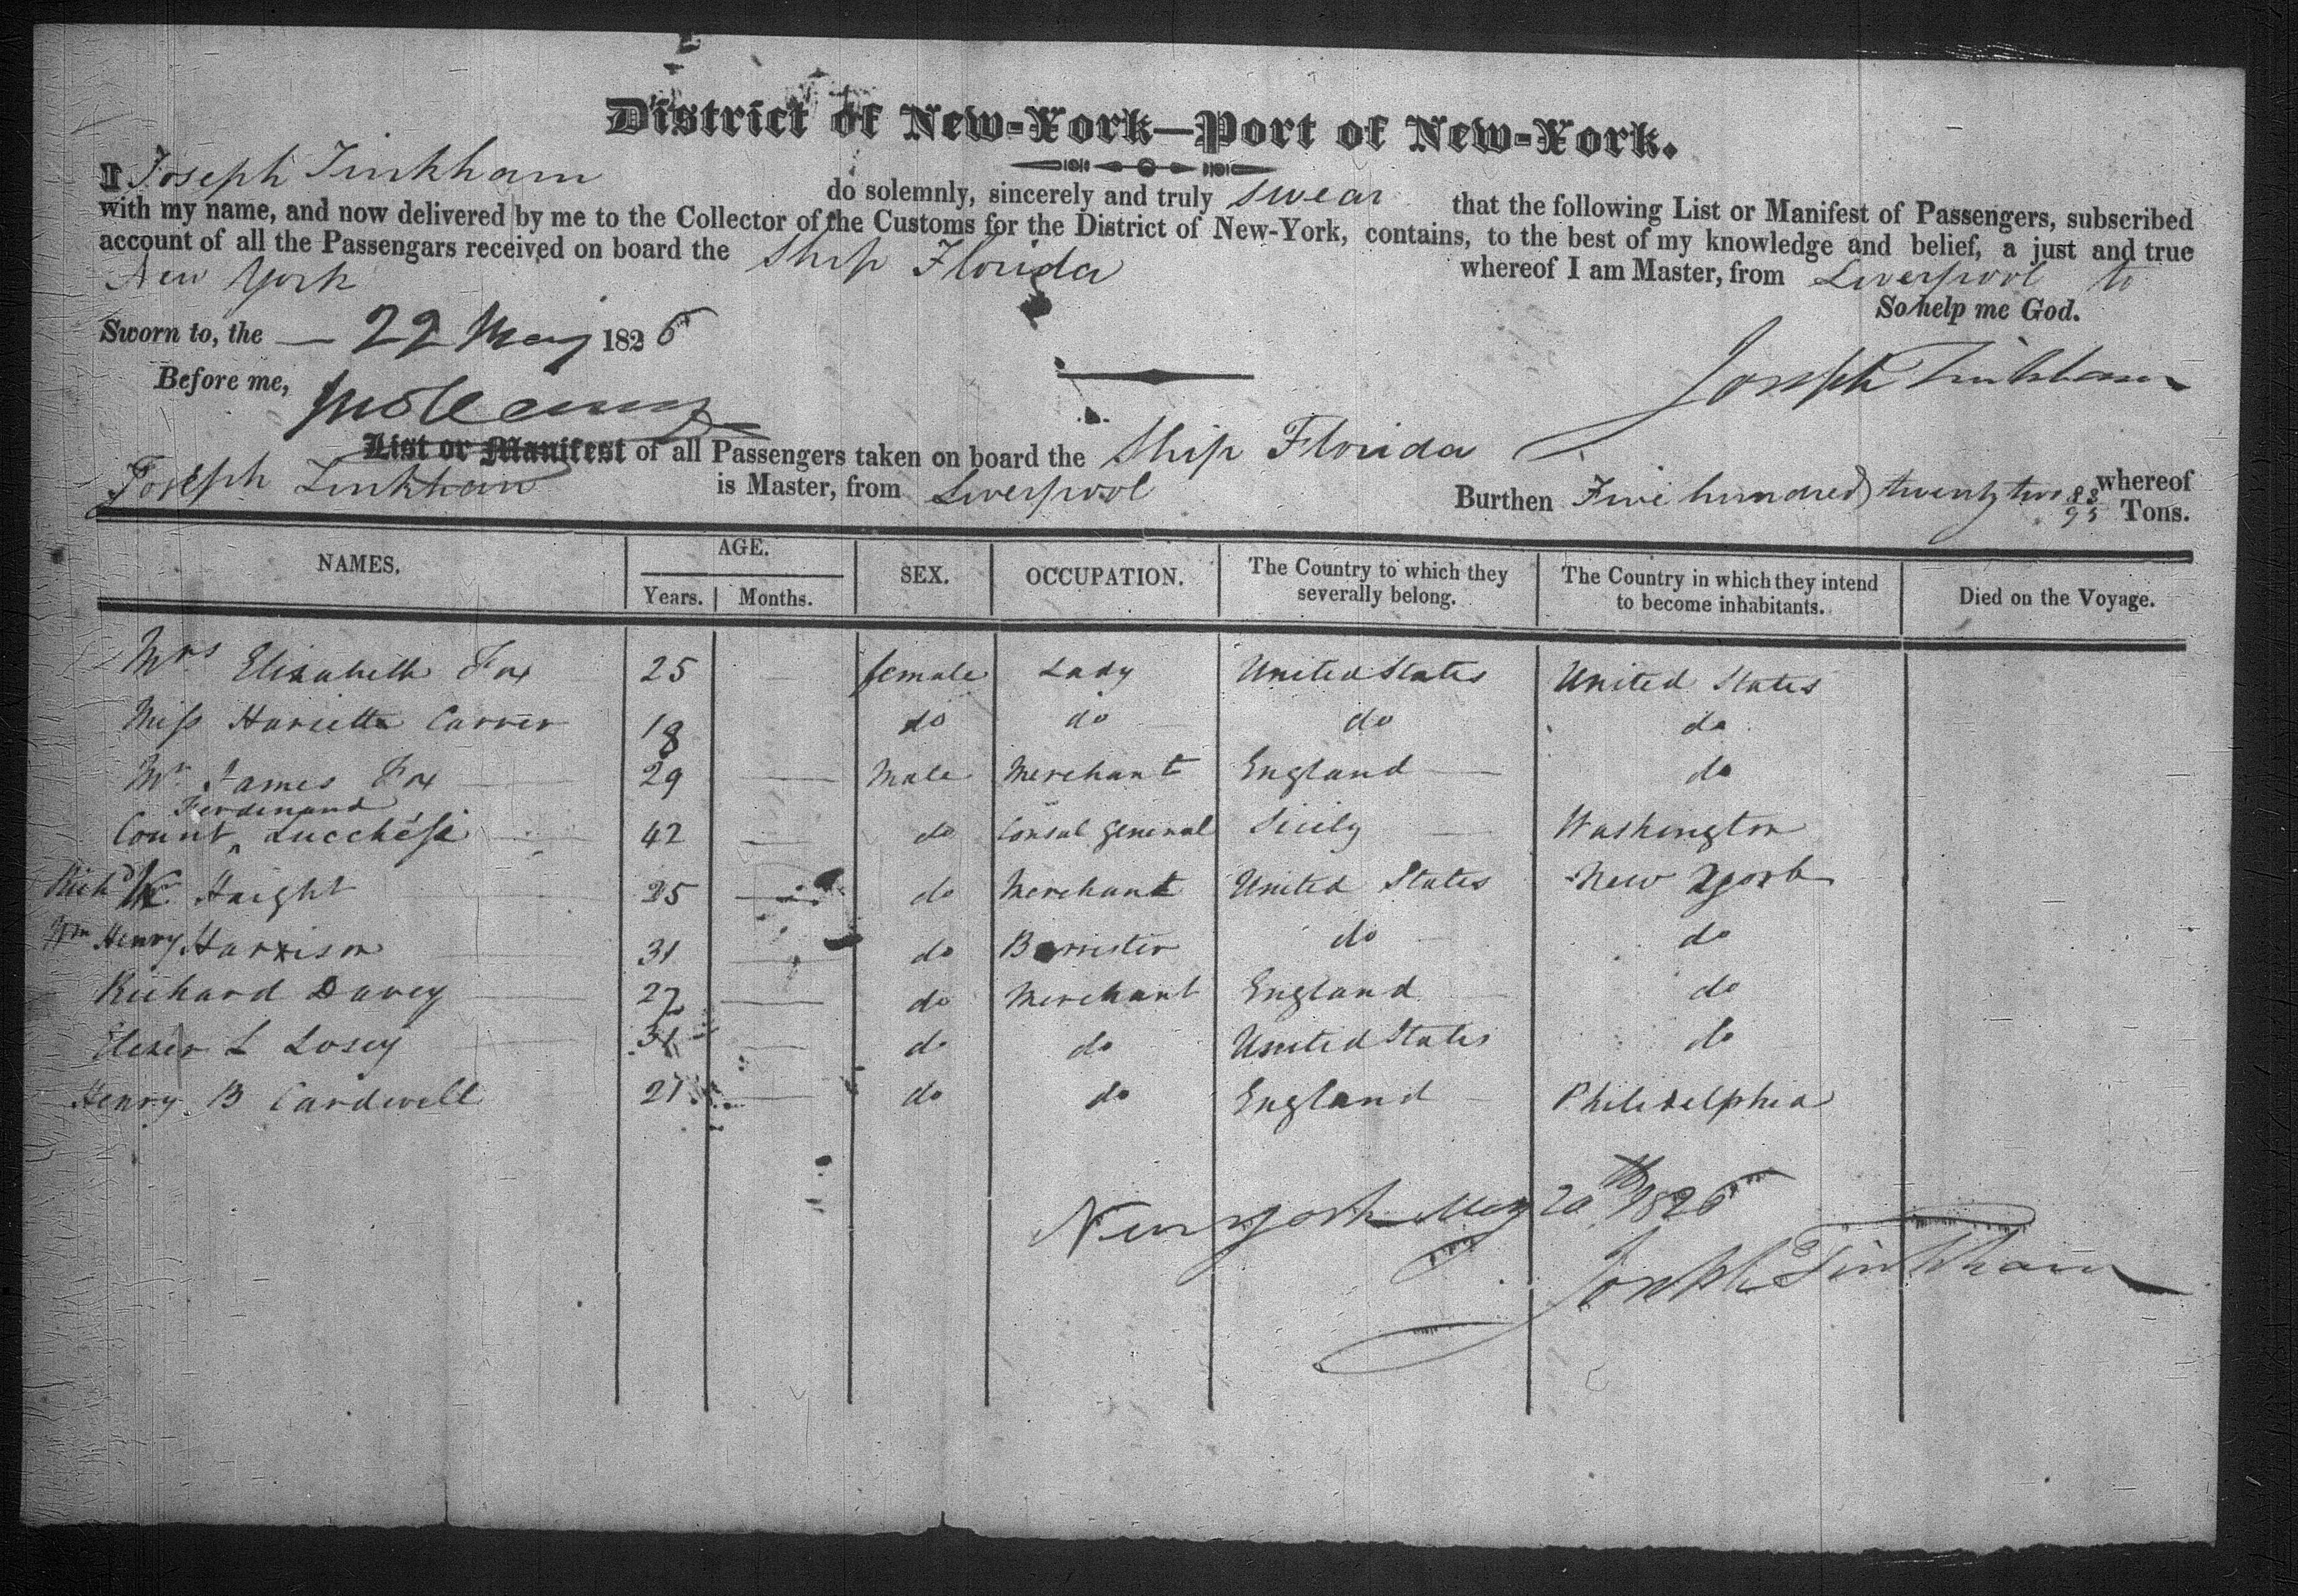 District of New-York—Port of New-York.
I Joseph Tinkham do solemnly, sincerely and truly swear that the following List or Manifest of Passengers, subscribed
with my name, and now delivered by me to the Collector of the Customs for the District of New-York, contains, to the best of my knowledge and belief, a just and true
account of all the Passengars received on board the Ship Florida whereof I am Master, from Liverpool to
New York
So help me God.
Sworn to, the — 22 May 1826
Before me,
Joseph Tinkham
List or Manifest of all Passengers taken on board the Ship Florida whereof
Joseph Tinkham is Master, from Liverpool Burthen Five hundred twenty two 83/95 Tons.
NAMES. AGE. SEX. OCCUPATION. The Country to which they severally belong. The Country in which they intend to become inhabitants. Died on the Voyage.
Years. Months.
Mrs Elizabeth Fox 25 female Lady United States United States
Miss Harietta Carver 18 do do do do
Mr James Fox 29 Male Merchant England do
Ferdinand
Count ^ Lucchési 42 do Consul General Sicily Washington
Richd K Haight 25 do Merchant United States New York
Wm Henry Harrison 31 do Barrister do do
Richard Davey 27 do Merchant England do
L Losey 31 do do United States do
Henry B Cardwell 21 do do England Philidelphia
New york May 20th 1826
Joseph Tinkham